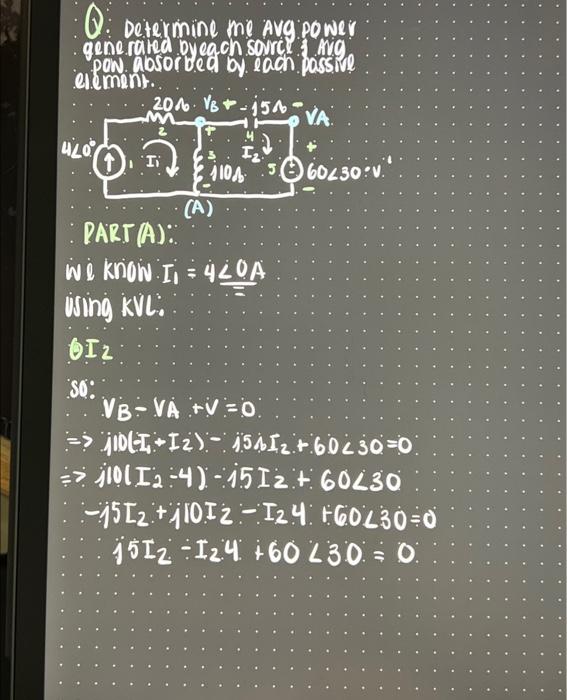 Q. Determine the Avg power
generated by each source & Avg
pow. absorbed by each passive
element.
20Ω VB + -j5Ω -
VA
2 4
4∠0° 1 I1 + 3 - j10Ω I2 5 + 60∠30°V -
(A)
PART(A):
we know I1 = 4∠0A
using KVL:
@I2
so:
VB - VA + V = 0
=> j10(-I1+I2) - j5ΩI2 + 60∠30=0
=> j10(I2-4) - j5I2 + 60∠30
-j5I2 + j10I2 - I24 + 60∠30=0
j5I2 - I24 + 60∠30 = 0